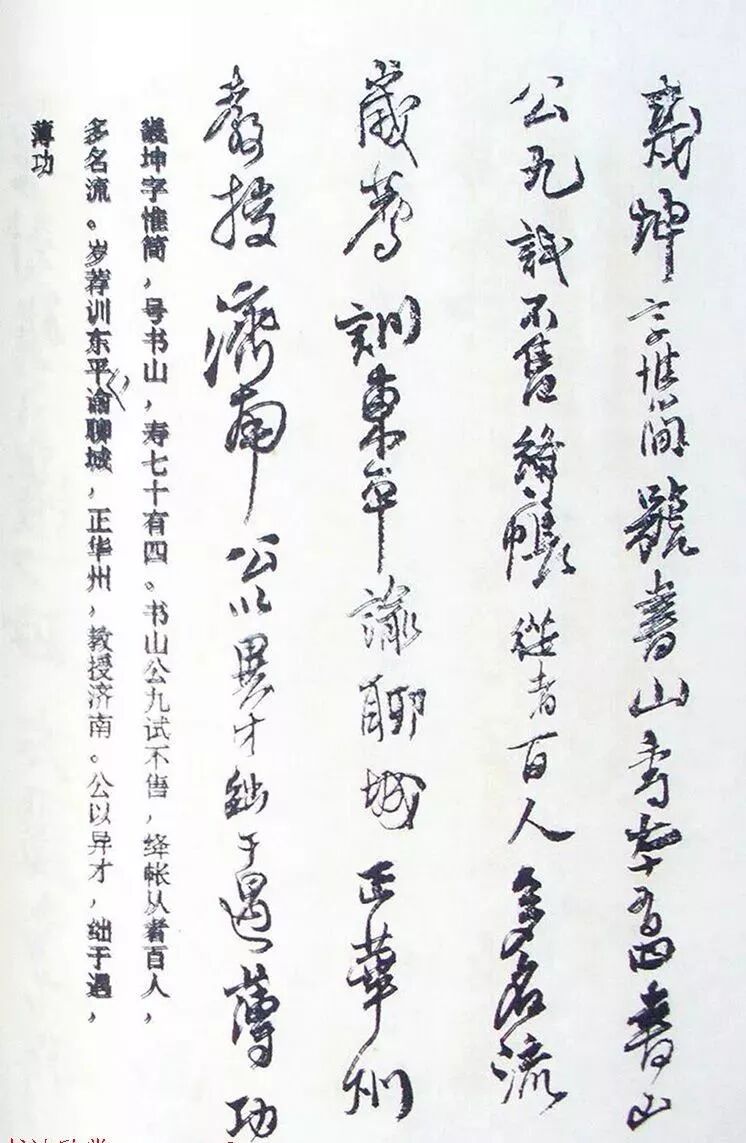 羲坤字惟簡號書山壽七十有四書山
公九試不售絳帳從者百人多名流
歲薦訓東平諭聊城正華州
教授濟南公以異才絀于遇薄功
羲坤字惟简，号书山，寿七十有四。书山公九试不售，绛帐从者百人，
多名流。岁荐训东平谕聊城，正华州，教授济南。公以异才，绌于遇，
薄功